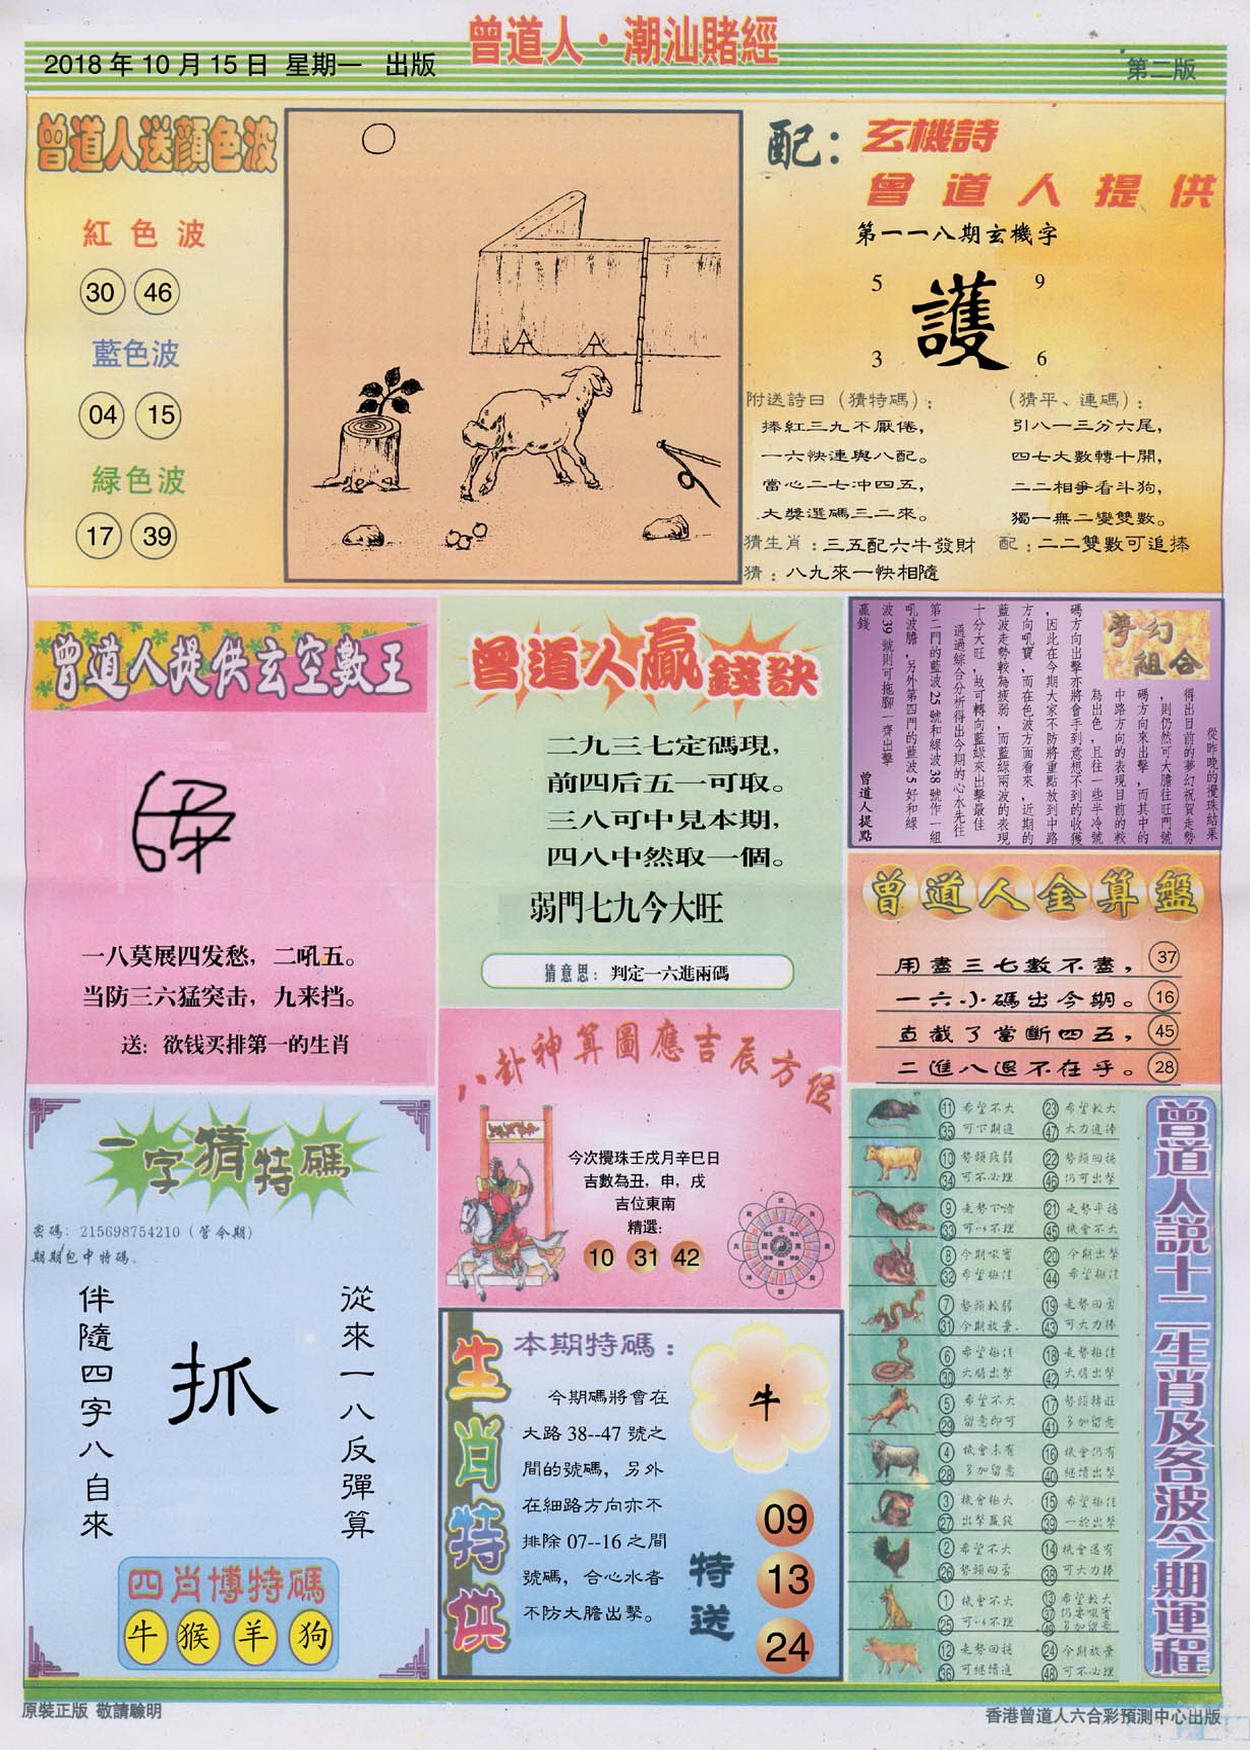 曾道人·潮汕賭經
2018年10月15日 星期一 出版
第二版
曾道人送顔色波
紅色波
30 46
藍色波
04 15
緑色波
17 39
配：
玄機詩
曾道人提供
第一一八期玄機字
5 9
護
3 6
附送詩曰（猜特碼）：
捧紅三九不厭倦，
一六快連與八配。
當心二七冲四五，
大獎選碼三二來。
猜生肖：三五配六牛發財
猜：八九來一快相隨
（猜平、連碼）：
引八一三分六尾，
四七大數轉十開，
二二相爭看斗狗，
獨一無二變雙數。
配：二二雙數可追捧
曾道人提供玄空數王
一八莫展四发愁，二吼五。
当防三六猛突击，九来挡。
送：欲钱买排第一的生肖
曾道人贏錢訣
二九三七定碼現，
前四后五一可取。
三八可中見本期，
四八中然取一個。
弱門七九今大旺
猜意思：判定一六進兩碼
夢幻組合
從昨晚的攪珠結果
得出目前的夢幻祝賀走勢
，則仍然可大膽往旺門號
碼方向來出擊，而其中的
中路方向的表現目前的較
為出色，且往一些半冷號
碼方向出擊亦將會手到意想不到的收獲
，因此在今期大家不防將重點放到中路
方向吼寶，而在色波方面看來，近期的
藍波走勢較為疲弱，而藍綠兩波的表現
十分大旺，故可轉向藍綠來出擊最佳
通過綜合分析得出今期的心水先往
第二門的藍波25號和綠波38號作一組
吼波膽，另外第四門的藍波5好和綠
波39號則可拖腳一齊出擊
贏錢
曾道人提點
曾道人金算盤
用盡三七數不盡，37
一六小碼出今期。16
直截了當斷四五，45
二進八退不在乎。28
一字猜特碼
密碼：215698754210（管令期）
期期包中特碼。
從來一八反彈算
抓
伴隨四字八自來
四肖博特碼
牛 猴 羊 狗
八卦神算圖應吉辰方位
今次攪珠壬戌月辛巳日
吉數為丑，申，戌
吉位東南
精選：
10 31 42
生肖特供
本期特碼：
今期碼將會在
大路38--47號之
間的號碼，另外
在細路方向亦不
排除07--16之間
號碼，合心水者
不防大膽出擊。
牛
特送
09
13
24
曾道人説十二生肖及各波今期運程
11 希望不大 23 希望較大
35 可下期進 47 大力進捧
10 勢頭段弱 22 勢頭回穩
34 可不必理 46 仍可出擊
9 走勢下滑 21 走勢平穩
33 可以不理 45 機會不大
8 今期吼寶 20 今期出擊
32 希望極佳 44 希望極佳
7 勢頭較弱 19 走勢回勇
31 今期放棄. 43 可大力捧
6 希望極佳 18 走勢極佳
30 大膽出擊 42 大膽出擊
5 希望不大 17 勢頭轉旺
29 留意即可 41 多加留意
4 機會未有 16 機會仍有
28 多加留意 40 繼續出擊
3 機會極大 15 希望極佳
27 出擊贏錢 39 一於出擊
2 希望不大 14 機會還有
26 勢頭回勇 38 可大力捧
1 機會不大 13 希望較大
25 可以不理 37 仍要吼寶
49 多加留意
12 走勢回穩 24 今期放棄
36 可繼續進 48 可不必理
原裝正版 敬請驗明
香港曾道人六合彩預測中心出版